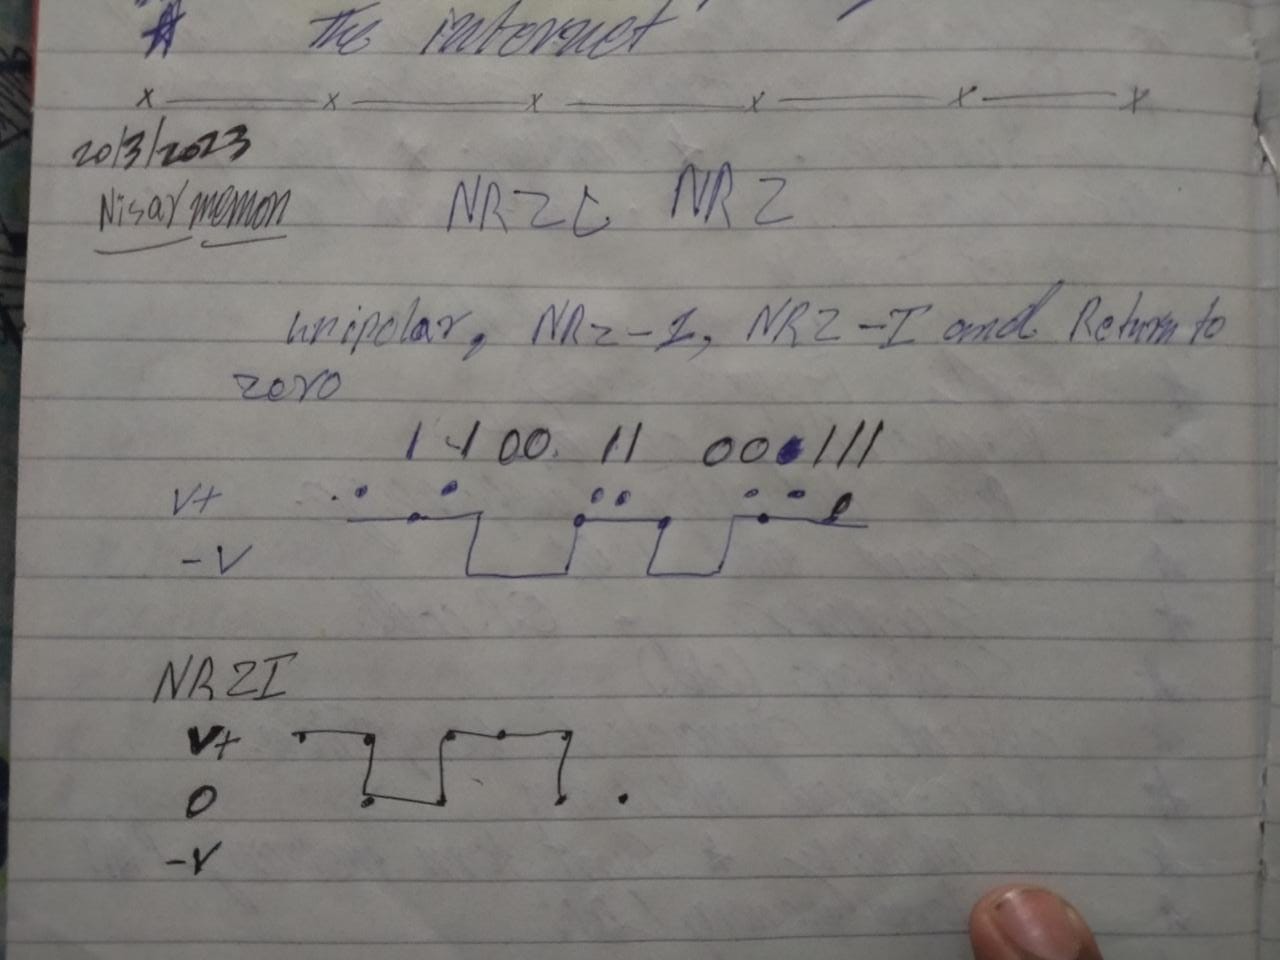 The internet
x x x x x x
20/3/2023
Nisar memon
NRZL NRZ
unipolar, NRZ-I, NRZ-I and Return to
zero
1 1 00. 11 00 111
V+
-V
NRZI
V+
0
-V